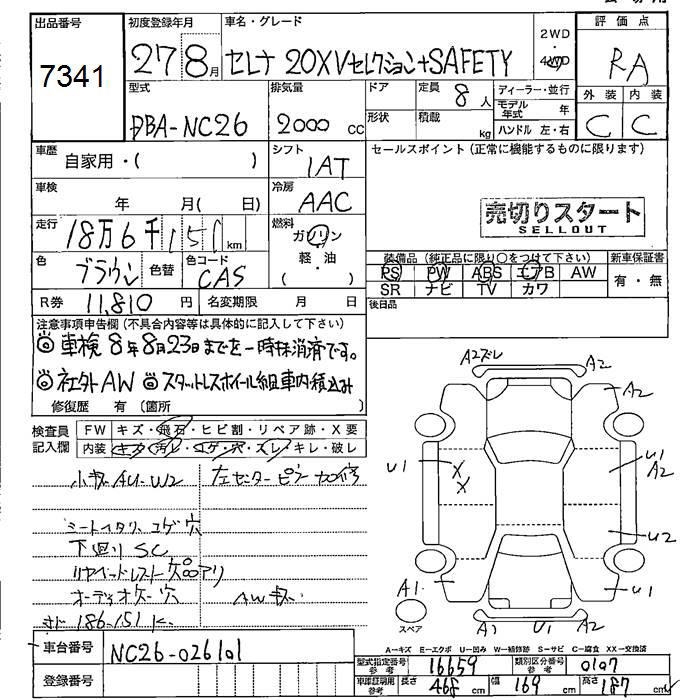 出品番号 初度登録年月 車名・グレード 2WD 評価点
7341 27 8月 セレナ 20XVセレクション+SAFETY 4WD RA
型式 排気量 ドア 定員 8人 ディーラー・並行 外装 内装
DBA-NC26 2000cc 形状 積載 kg モデル年式 年 C C
ハンドル 左・右
車歴 自家用・( ) シフト IAT セールスポイント(正常に機能するものに限ります)
車検 年 月( 日) 冷房 AAC
売切りスタート
SELLOUT
走行 18万6千151km 燃料 ガソリン
軽・油
( )
色 ブラウン 色替 色コード CAS 装備品(純正品に限り○をつけて下さい) 新車保証書
PS PW ABS エアB AW 有・無
R券 11,810円 名変期限 月 日 SR ナビ TV カワ
後日品
注意事項申告欄(不具合内容等は具体的に記入して下さい)
◎車検8年8月23日までを一時抹消済です。
◎社外AW ◎スタットレスホイル組車内積込み
修復歴 有(箇所 )
A2ズレ A2
A2
検査員記入欄 FW キズ・飛石・ヒビ割・リペア跡・X要
内装 キズ・汚レ・コゲ・穴・スレ・キレ・破レ
U1 X X U1 A2
小キズAU-W2 左センターピラー加修
シートイタリ、コゲ穴 U2
下廻りSC
リヤヘッドレスト欠品アリ
オーディオケー穴 AWキズ A1 U1
186-151K. スペア A1 U1 A2
車台番号 NC26-026101 A-キズ E-エクボ U-凹み W-補修跡 S-サビ C-腐食 XX-交換済
型式指定番号参考 16659 類別区分番号参考 0107
登録番号 車庫証明用参考 長さ 468cm 幅 169cm 高さ 187cm